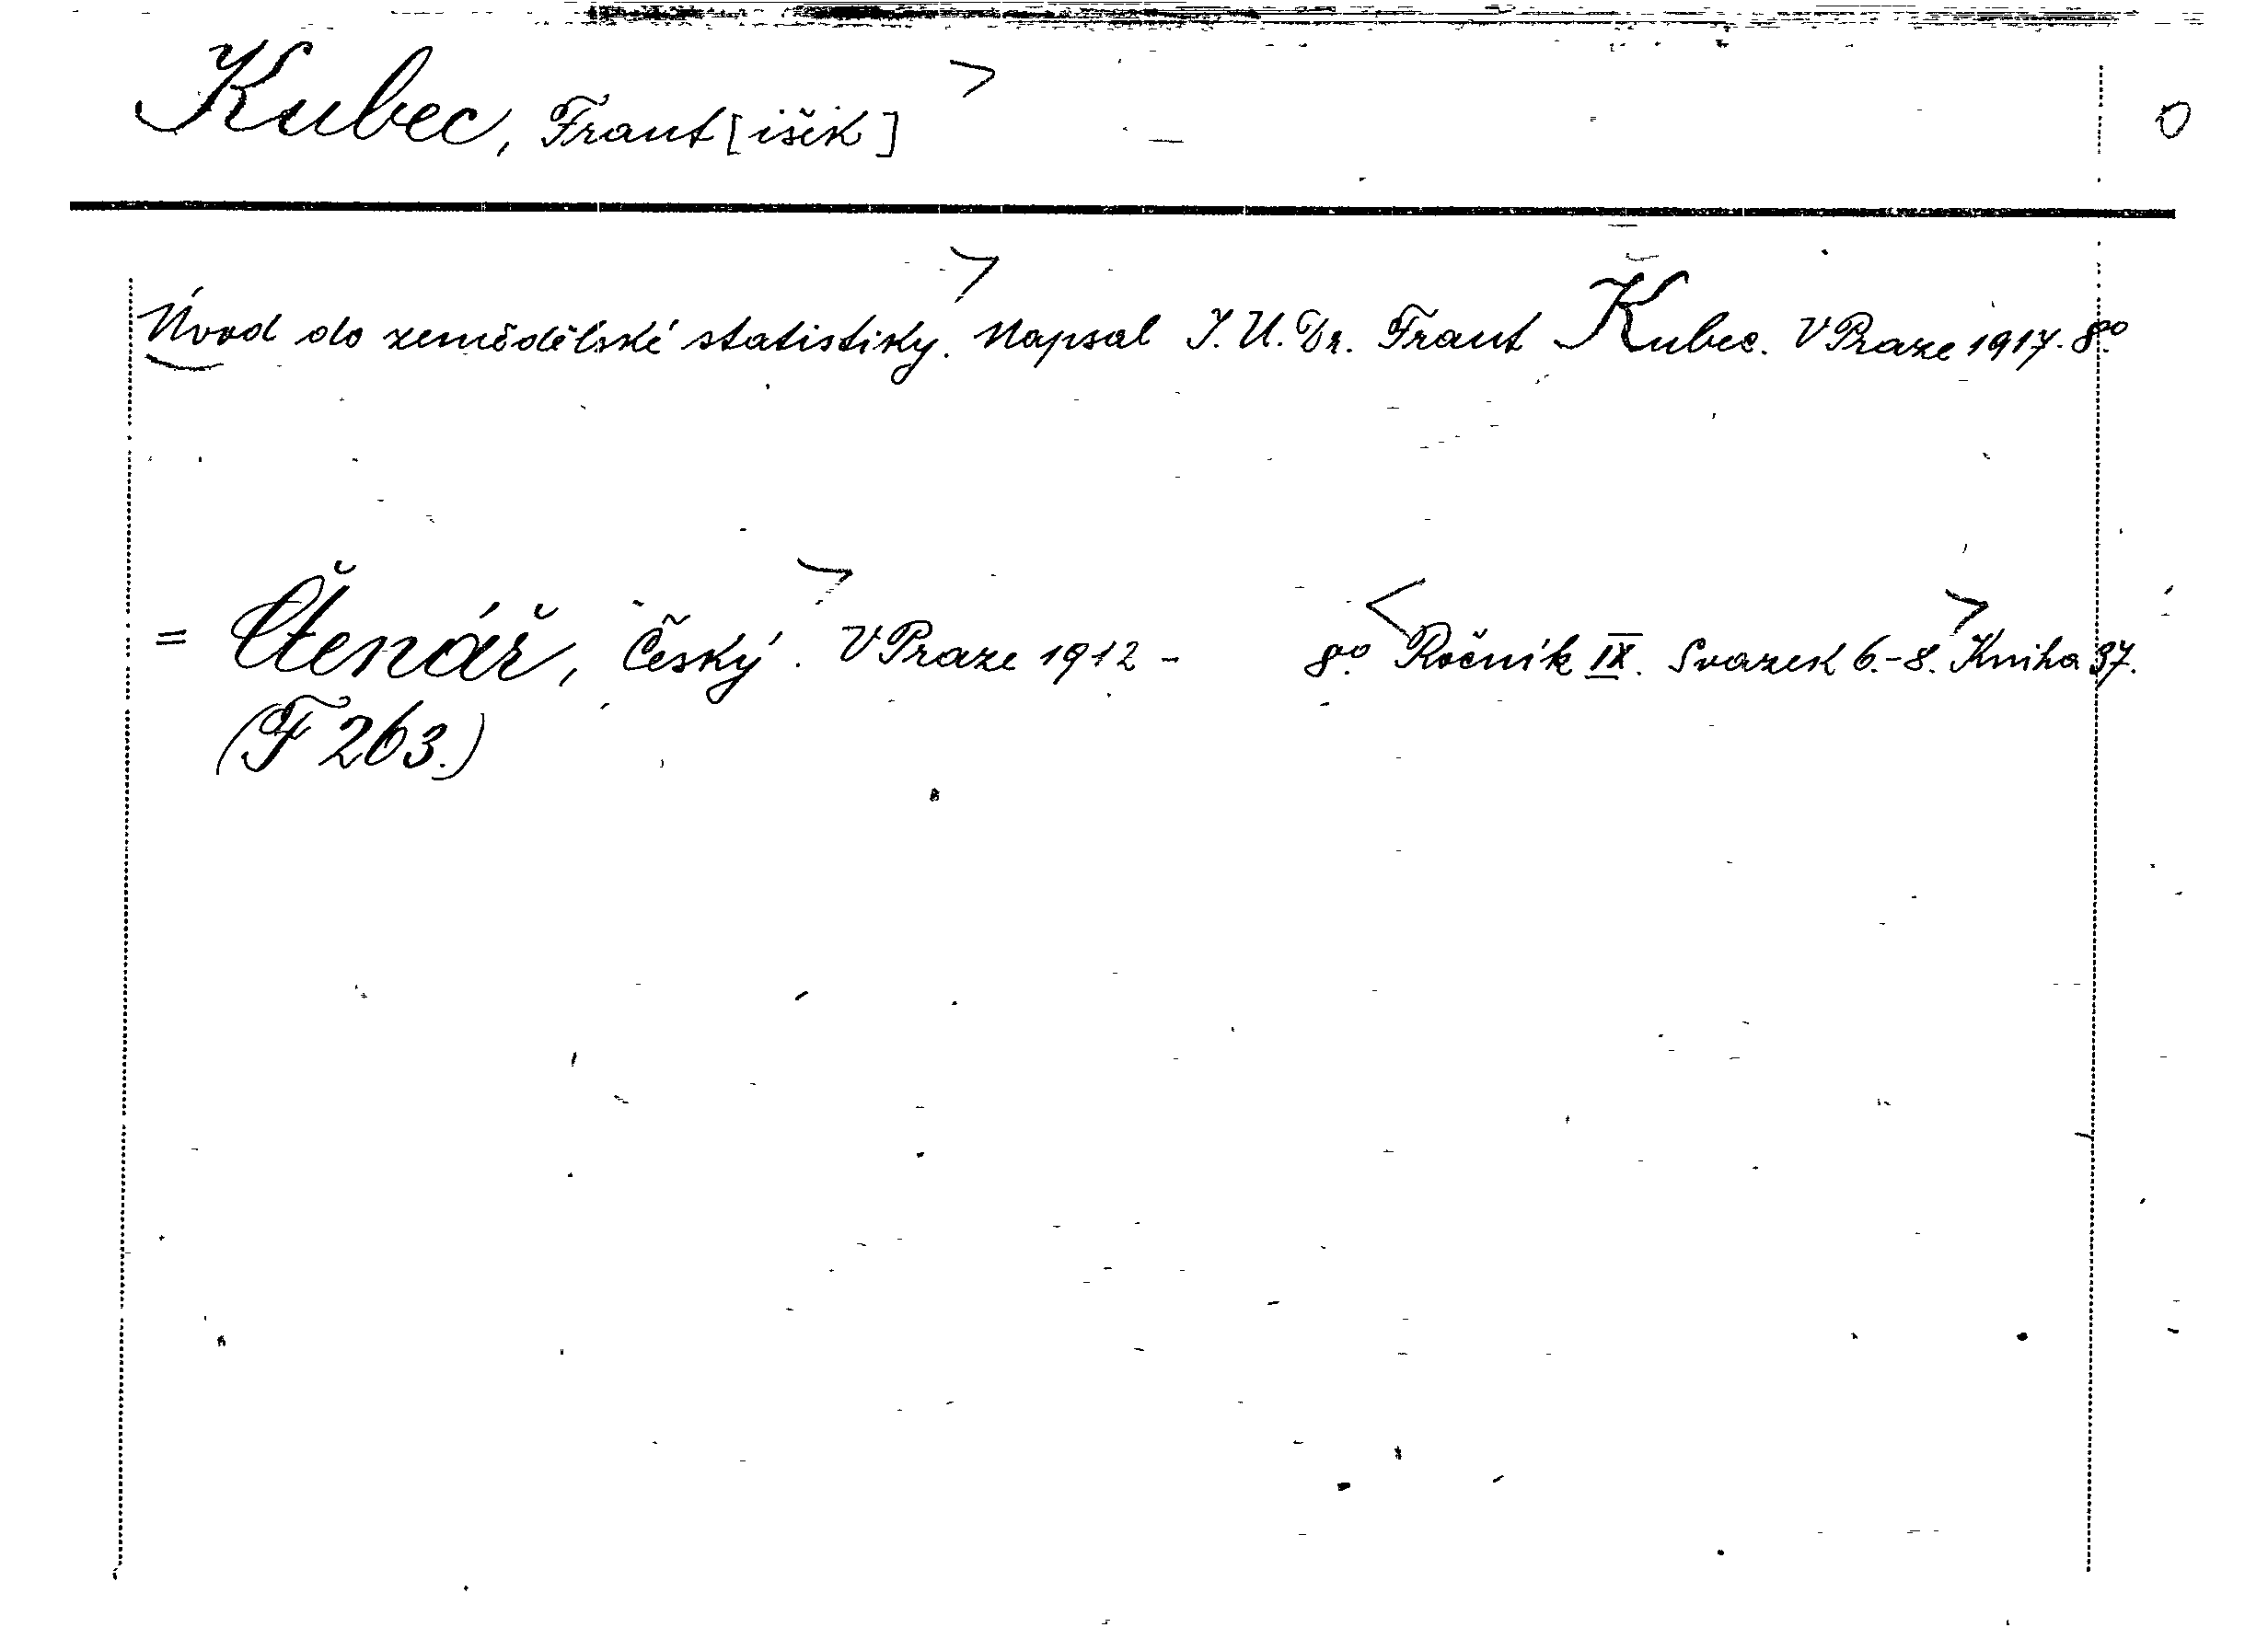 Kubec, Frant[išek] 0
Úvod do zemědělské statistiky. Napsal J. U. Dr. Frant Kubec. V Praze 1917. 8º.
= Čtenář, Český. V Praze 1912 - 8º. Ročník IX. Svazek 6.-8. Kniha 37.
(F 263.)